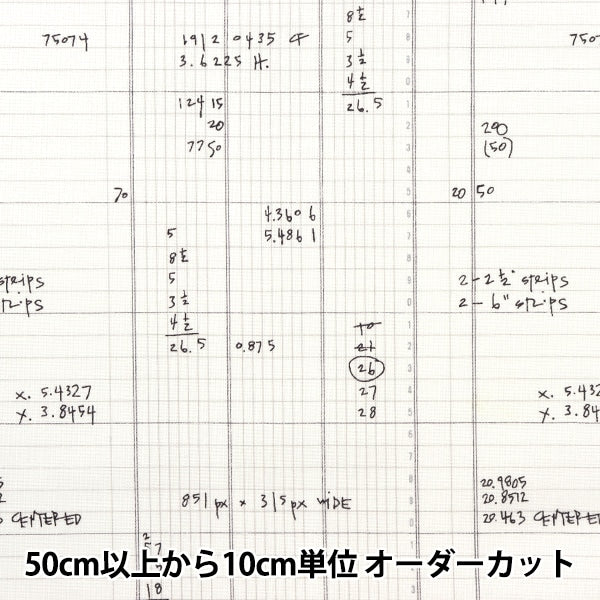 8 ½
75074
1912 0435 CF
5
750
3.6225 H.
3 ½
4 ½
124 15
26.5
20
290
7750
(50)
70
20 50
4.3606
5
5.4861
8 ½
strips
5
2 - 2 ½" strips
strips
3 ½
2 - 6" strips
4 ½
10
26.5
0.875
21
26
x. 5.4327
27
x. 5.4
Y. 3.8454
28
Y. 3.84
20.9805
851 px x 315 px WIDE
20.8512
CENTERED
20.463 CENTERED
50cm以上から10cm単位 オーダーカット
18